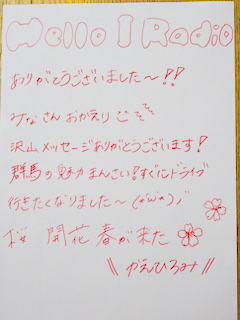 Hello I Radio
ありがとうございました〜!!
みなさんおかえり
沢山メッセージありがとうございます!
群馬の魅力まんさい!すぐにドライブ
行きたくなりました〜(*'ω'*)ノ
桜 開花 春が来た
\\ かえひろみ //